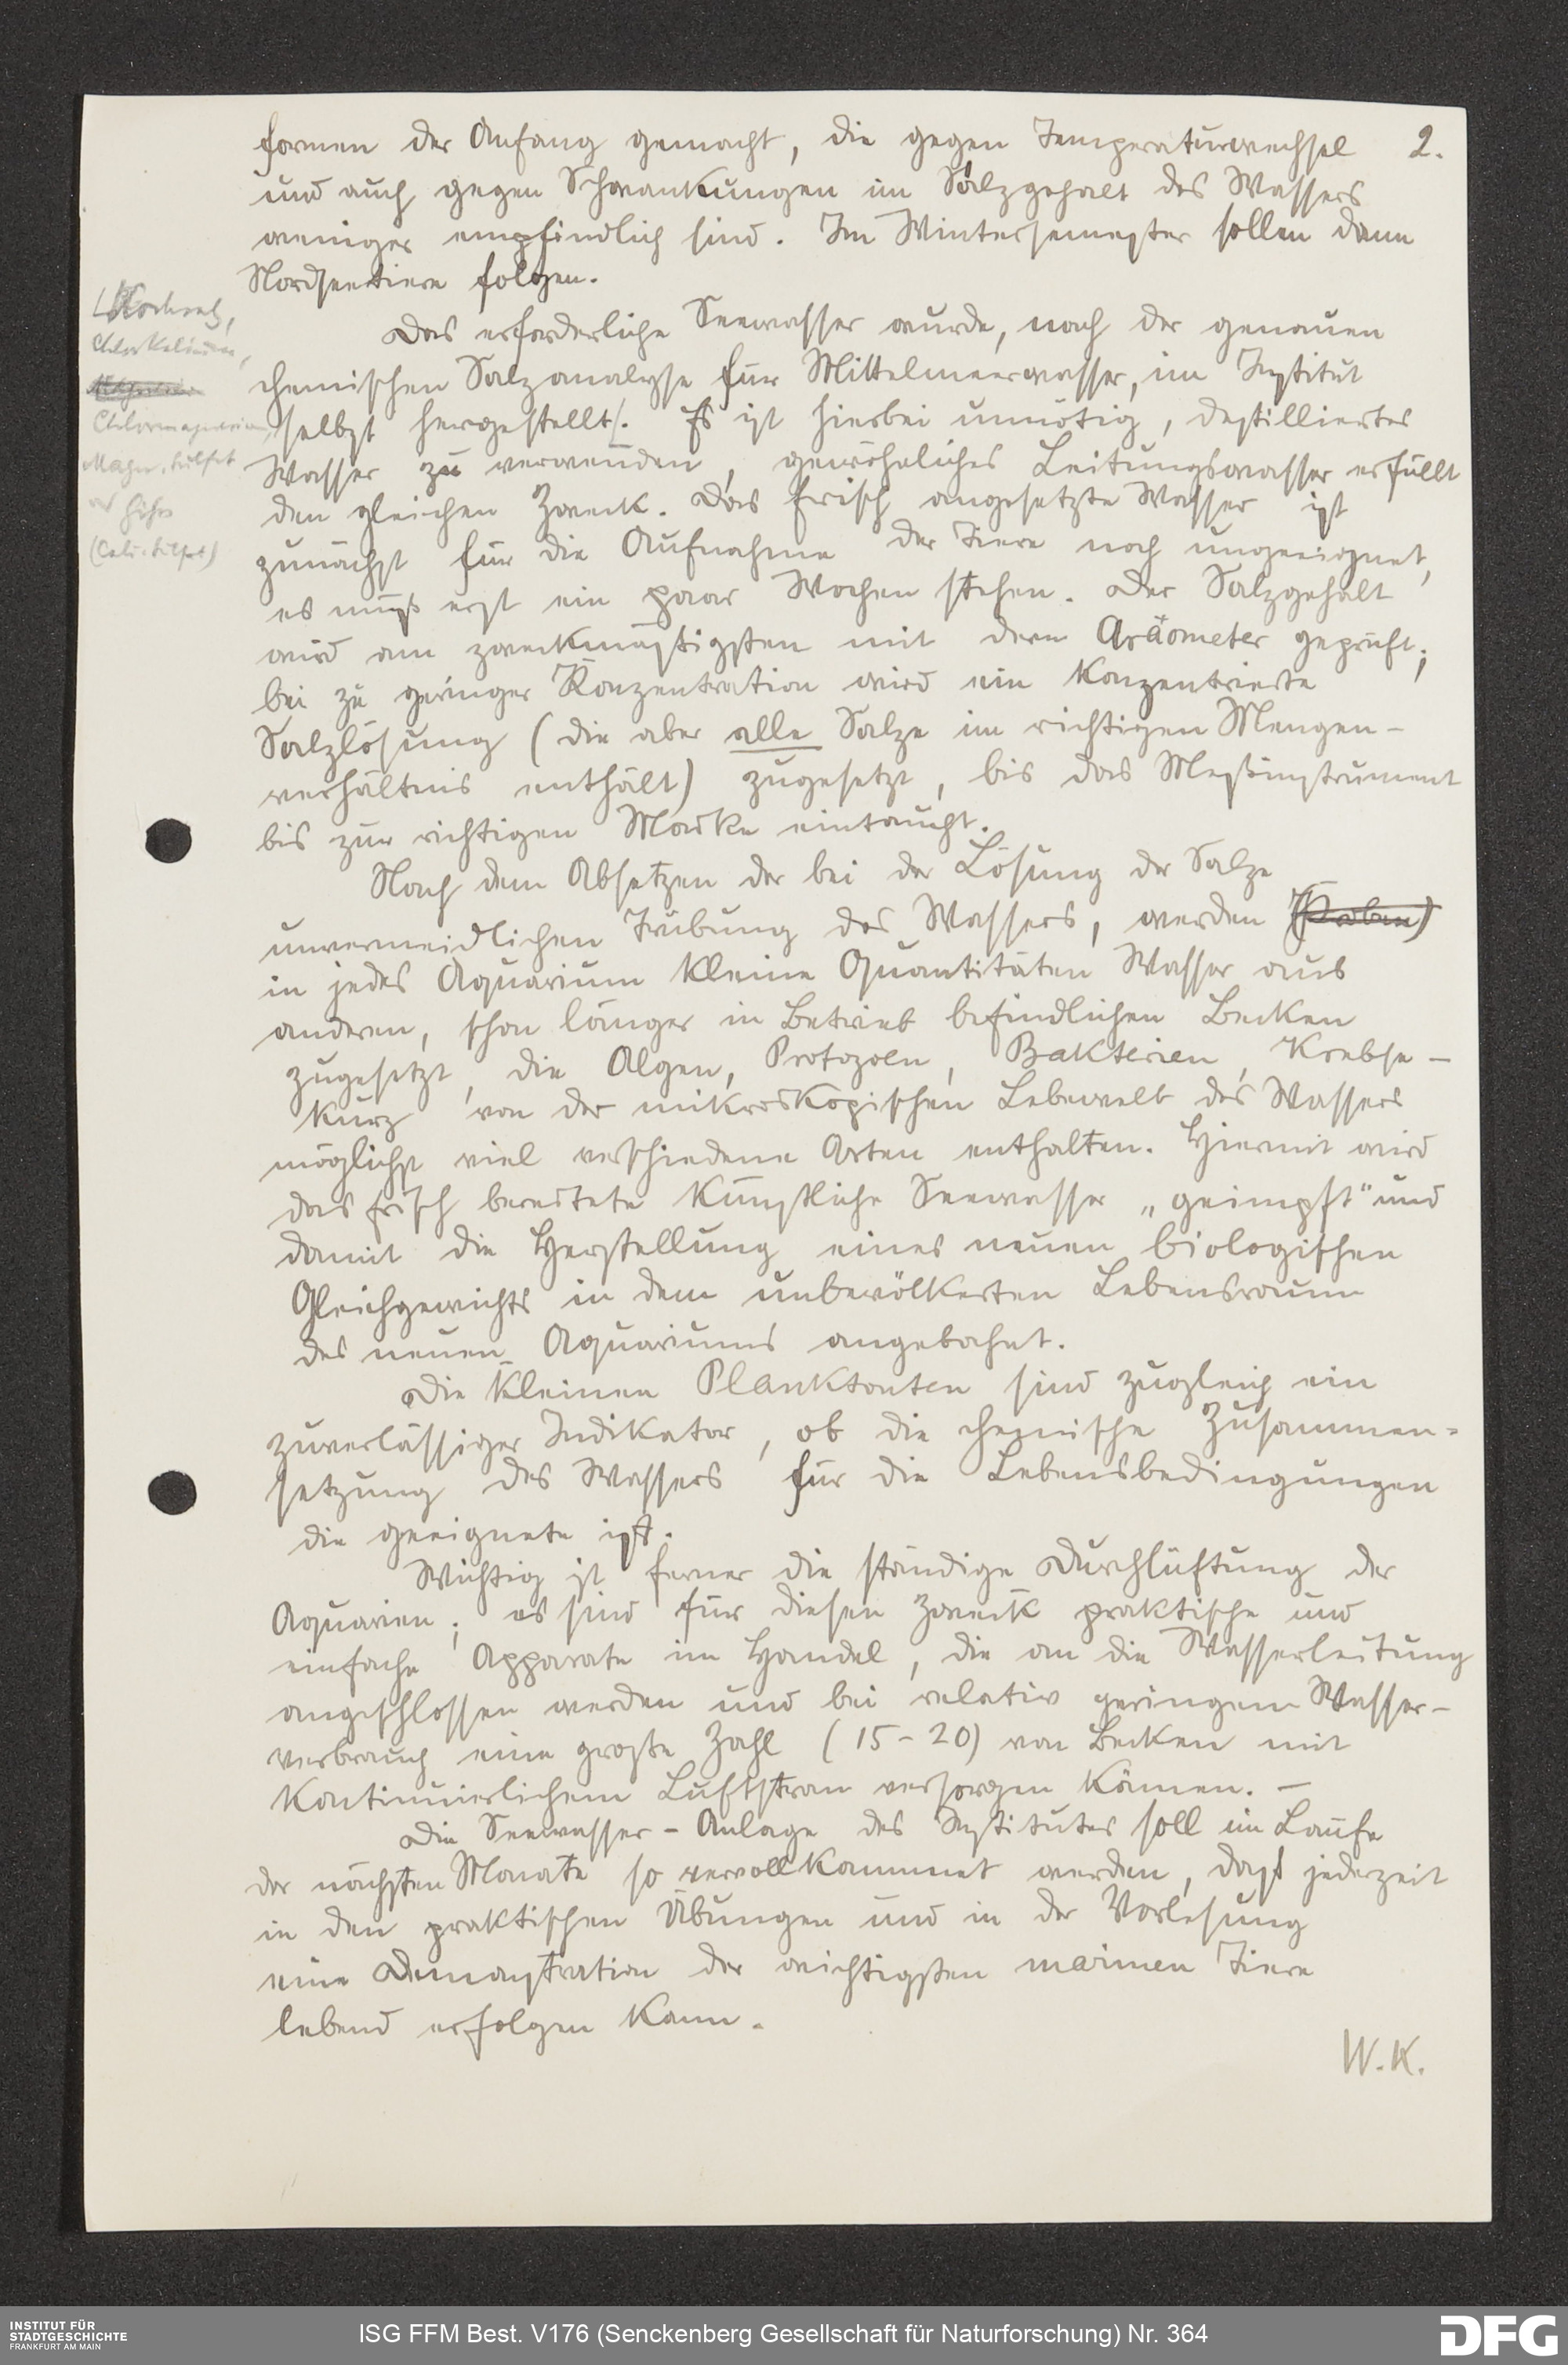 2.
formen der Anfang gemacht, die gegen Temperaturwechsel
und auch gegen Schwankungen im Salzgehalt des Wassers
weniger empfindlich sind. Im Wintersemester sollen dann
Nordseetiere folgen.
Das erforderliche Seewasser wurde, nach der genauen
chemischen Salzanalyse für Mittelmeerwasser, im Institut
selbst hergestellt/. Es ist hierbei unnötig, destilliertes
Wasser zu verwenden, gewöhnliches Leitungswasser erfüllt
den gleichen Zweck. Das frisch angesetzte Wasser ist
zunächst für die Aufnahme der Tiere noch ungeeignet,
es muß erst ein paar Wochen stehen. Der Salzgehalt
wird am zweckmäßigsten mit dem Aräometer geprüft;
bei zu geringer Konzentration wird ein konzentrierte
Salzlösung (die aber alle Salze im richtigen Mengen-
verhältnis enthält) zugesetzt, bis das Meßinstrument
bis zur richtigen Marke eintaucht.
Nach dem Absetzen der bei der Lösung der Salze
unvermeidlichen Trübung des Wassers, werden (Proben)
in jedes Aquarium kleine Quantitäten Wasser aus
anderen, schon länger in Betrieb befindlichen Becken
zugesetzt, die Algen, Protozoen, Bakterien, Krebse -
kurz von der mikroskopischen Lebewelt des Wassers
möglichst viel verschiedene Arten enthalten. Hiermit wird
das frisch bereitete künstliche Seewasser „geimpft" und
damit die Herstellung eines neuen biologischen
Gleichgewichts in dem unbevölkerten Lebensraum
des neuen Aquariums angebahnt.
Die kleinen Planktonten sind zugleich ein
zuverlässiger Indikator, ob die chemische Zusammen-
setzung des Wassers für die Lebensbedingungen
die geeignete ist.
Wichtig ist ferner die ständige Durchlüftung der
Aquarien; es sind für diesen Zweck praktische und
einfache Apparate im Handel, die an die Wasserleitung
angeschlossen werden und bei relativ geringem Wasser-
verbrauch eine große Zahl (15-20) von Becken mit
kontinuierlichem Luftstrom versorgen können. -
Die Seewasser-Anlage des Institutes soll im Laufe
der nächsten Monate so vervollkommnet werden, daß jederzeit
in den praktischen Übungen und in der Vorlesung
eine Demonstration der wichtigsten marinen Tiere
lebend erfolgen kann.
W.K.
(Kochsalz,
Chlorkalium,
Chlormagnesium,
Magn. sulfat
INSTITUT FÜR
STADTGESCHICHTE
FRANKFURT AM MAIN
ISG FFM Best. V176 (Senckenberg Gesellschaft für Naturforschung) Nr. 364
DFG